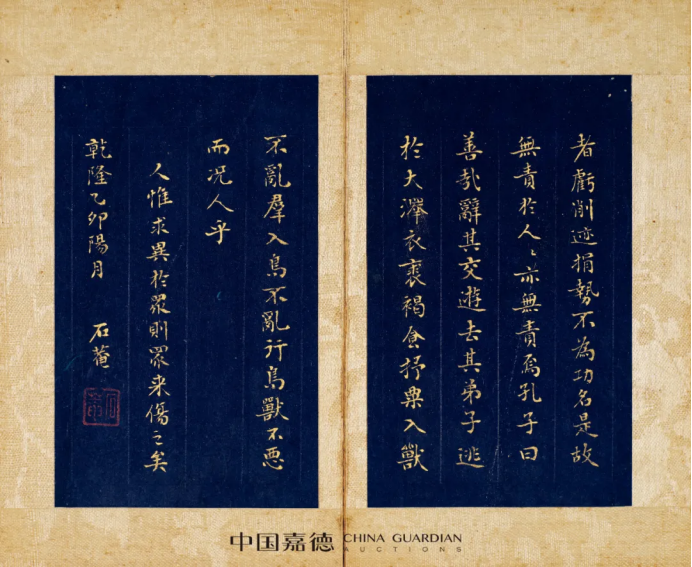 者虧削迹捐勢不為功名是故
無責於人〻亦無責焉孔子曰
善哉辭其交遊去其弟子逃
於大澤衣裘褐食杼栗入獸
不亂羣入鳥不亂行鳥獸不惡
而況人乎
人惟求異於眾則眾来傷之矣
乾隆乙卯陽月 石菴
中国嘉德 CHINA GUARDIAN
AUCTIONS